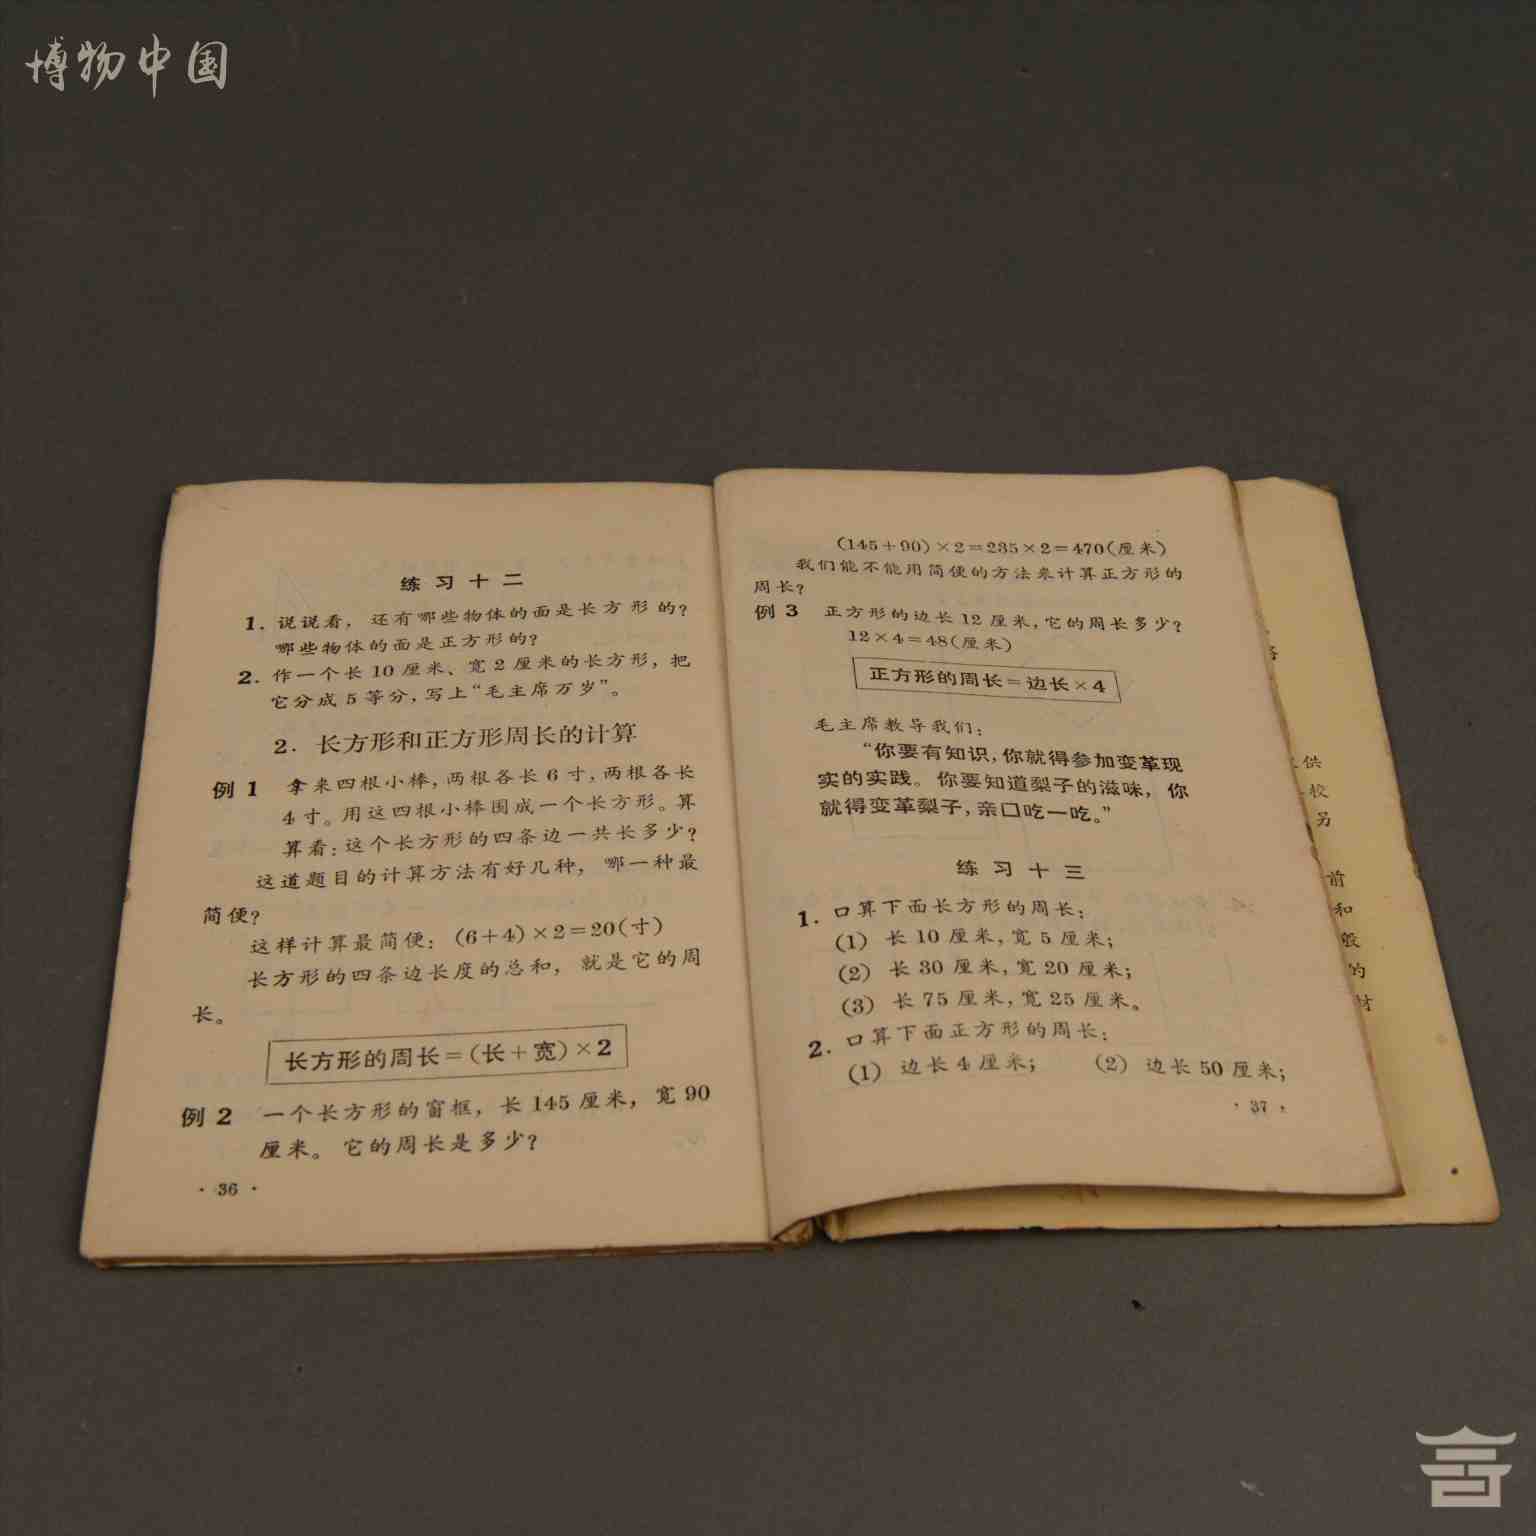 博物中国
练习十二
1. 说说看，还有哪些物体的面是长方形的？
哪些物体的面是正方形的？
2. 作一个长10厘米、宽2厘米的长方形，把
它分成5等分，写上“毛主席万岁”。
2. 长方形和正方形周长的计算
例1 拿来四根小棒，两根各长6寸，两根各长
4寸。用这四根小棒围成一个长方形。算
算看：这个长方形的四条边一共长多少？
这道题目的计算方法有好几种，哪一种最
简便？
这样计算最简便：(6+4)×2=20(寸)
长方形的四条边长度的总和，就是它的周
长。
长方形的周长=(长+宽)×2
例2 一个长方形的窗框，长145厘米，宽90
厘米。它的周长是多少？
·36·
(145+90)×2=235×2=470(厘米)
我们能不能用简便的方法来计算正方形的
周长？
例3 正方形的边长12厘米，它的周长多少？
12×4=48(厘米)
正方形的周长=边长×4
毛主席教导我们：
“你要有知识，你就得参加变革现
实的实践。你要知道梨子的滋味，你
就得变革梨子，亲口吃一吃。”
练习十三
1. 口算下面长方形的周长：
(1) 长10厘米，宽5厘米；
(2) 长30厘米，宽20厘米；
(3) 长75厘米，宽25厘米。
2. 口算下面正方形的周长：
(1) 边长4厘米； (2) 边长50厘米；
·37·
供
校
另
前
和
般
的
材